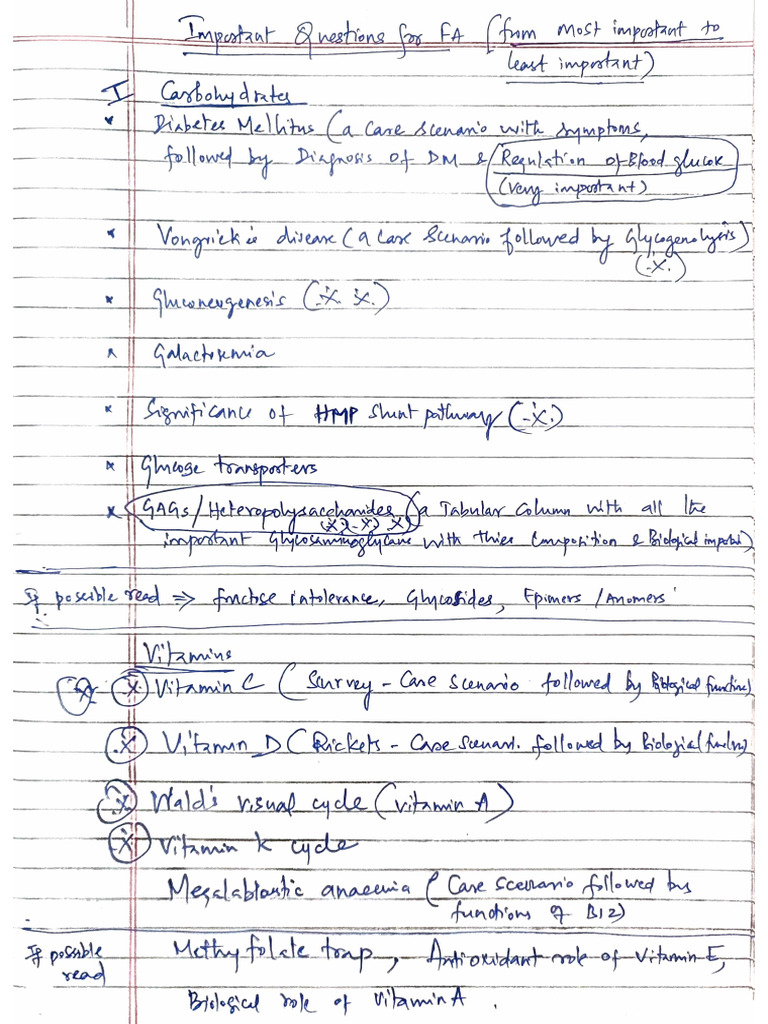 Important Questions for FA (from most important to
least important)
I Carbohydrates
* Diabetes Mellitus (a case scenario with symptoms,
followed by Diagnosis of DM & Regulation of Blood glucose
(very important)
* Vongrick's disease (a case scenario followed by Glycogenolysis)
(.X.)
* Gluconeogenesis (.X. X.)
* Galactosemia
* Significance of HMP shunt pathway (.X.)
* Glucose transporters
* GAGs/Heteropolysaccharides (a Tabular Column with all the
(X) (X) X)
important Glycosaminoglycans with thier Composition & Biological importan)
If possible read ⇒ fructose intolerance, Glycosides, Epimers / Anomers
Vitamins
X X Vitamin C (Survey - Case scenario followed by Biological functions)
X Vitamin D (Rickets - Case scenari. followed by Biological functions)
X Wald's visual cycle (vitamin A)
X Vitamin K cycle
Megalablastic anaemia (Case scenario followed by
functions of B12)
If possible read Methyfolate trap, Antioxidant role of Vitamin E,
Biological role of vitamin A.